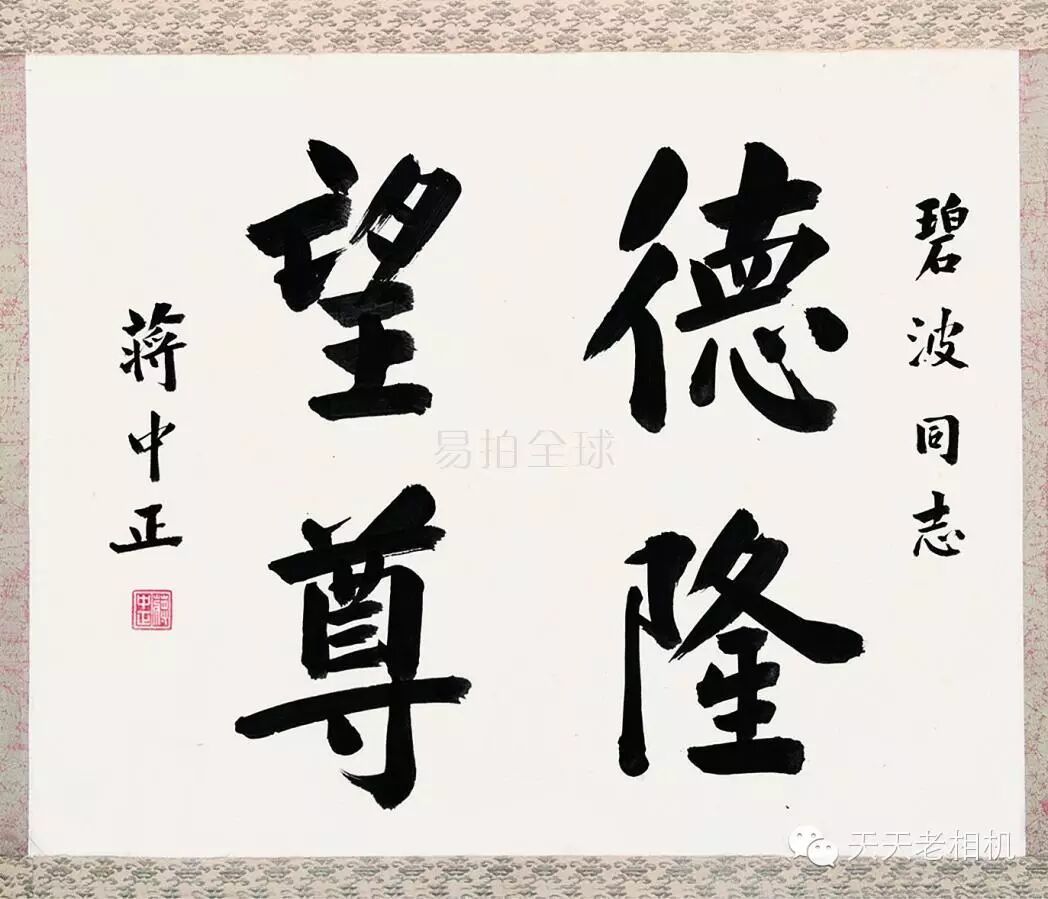 碧波同志
德隆
望尊
蔣中正
蔣中正
易拍全球
天天老相机